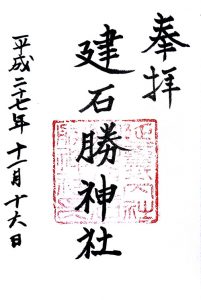 奉拝
建石勝神社
平成二十七年十一月十六日